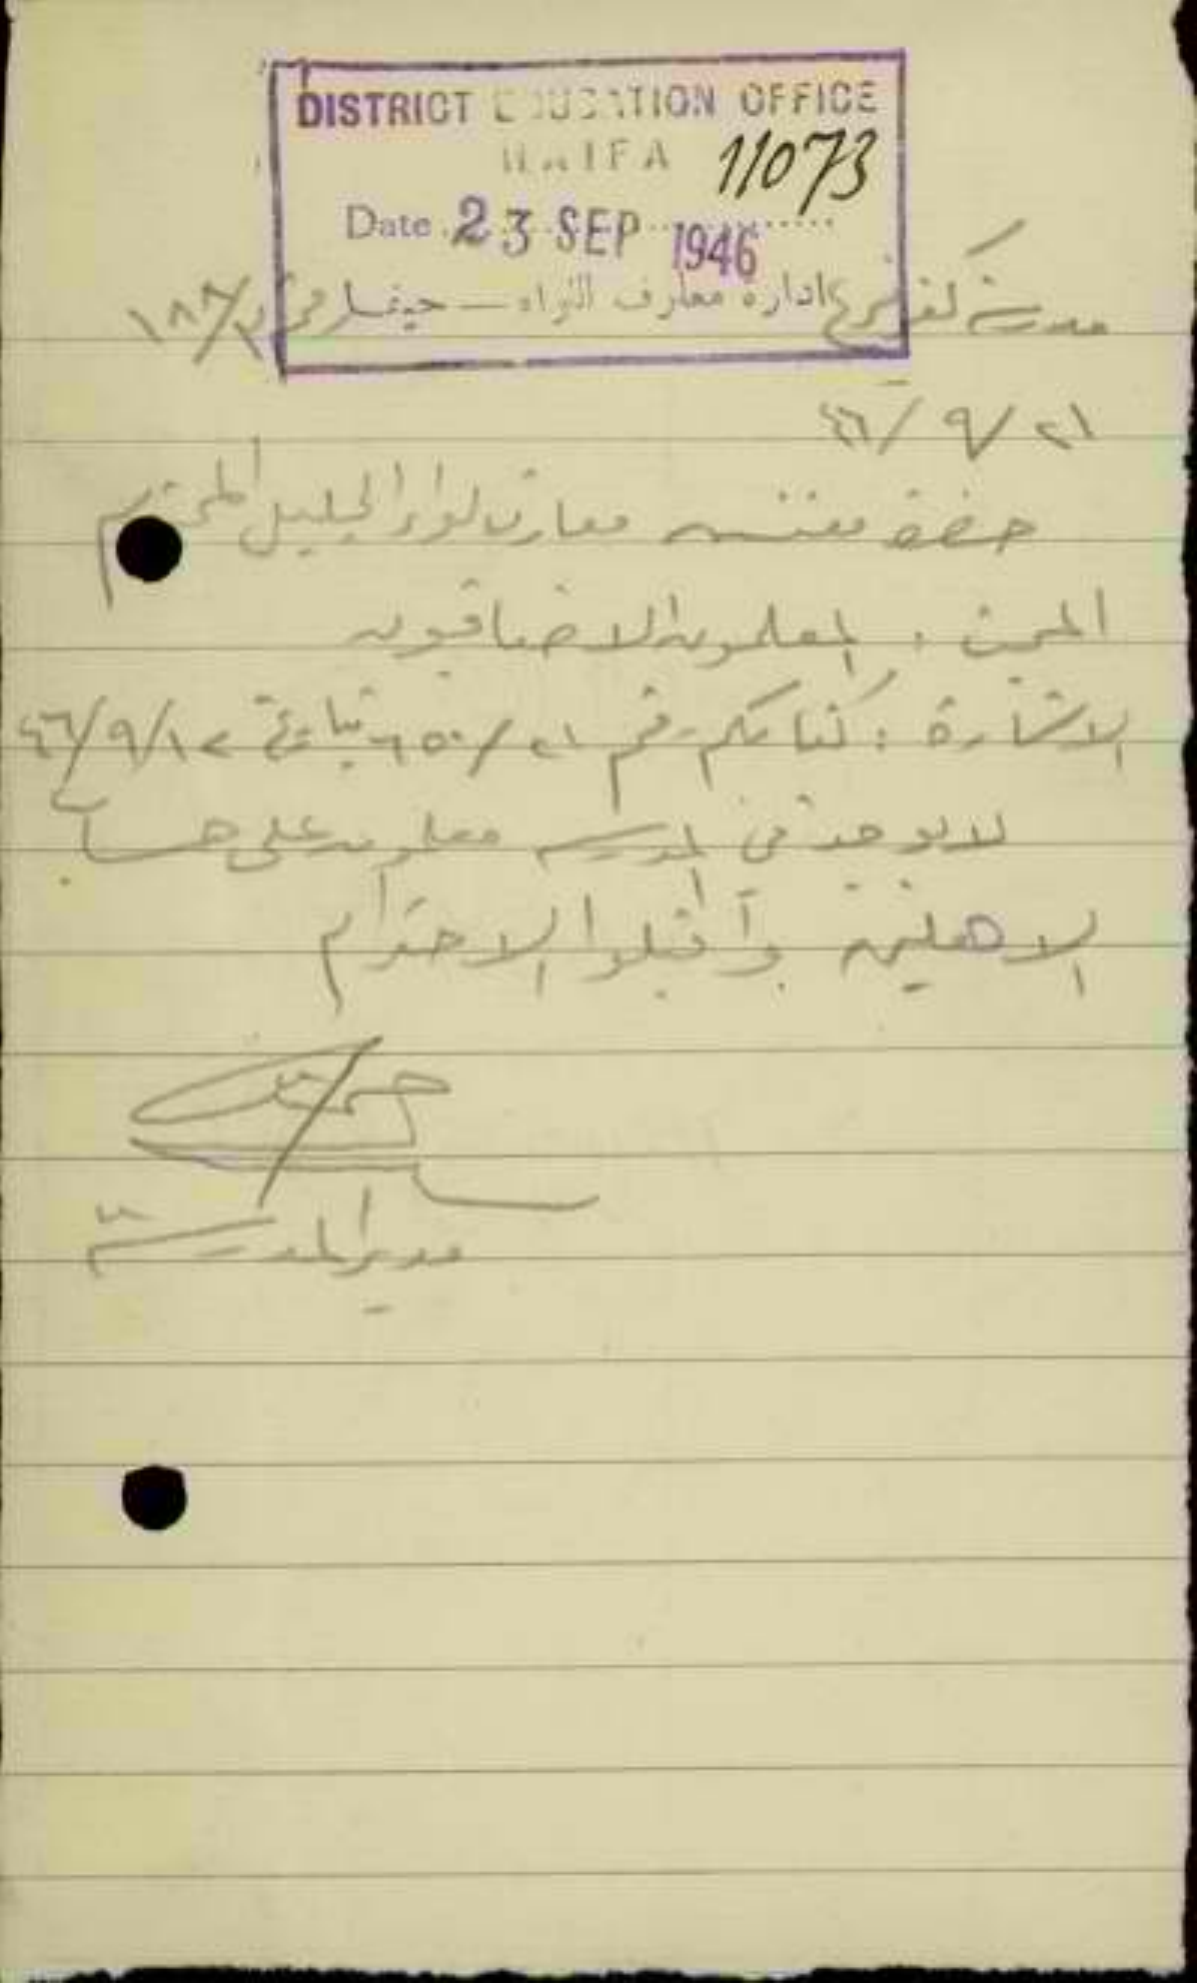 DISTRICT EDUCATION OFFICE
HAIFA 11073
Date 23 SEP 1946
ادارة معارف اللواء — حيفا
مدرسة كفر
٢١/٩/٤٦
حضرة مفتش معارف لواء الجليل المحترم
المبحث : المعلمون الاضافيون
الاشارة : كتابكم رقم ٢١/٦٥٠ بتاريخ ١٢/٩/٤٦
لا يوجد في المدرسة معلمون على حساب
الاهلين وأقبلوا الاحترام
مدير المدرسة